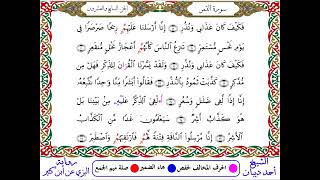 سورة القمر الجزء السابع والعشرون
فَكَيْفَ كَانَ عَذَابِي وَنُذُرِ إِنَّا أَرْسَلْنَا عَلَيْهِمُ رِيحًا صَرْصَرًا فِي
يَوْمِ نَحْسٍ مُّسْتَمِرٍّ تَنزِعُ النَّاسَ كَأَنَّهُمُ أَعْجَازُ نَخْلٍ مُّنقَعِرٍ
فَكَيْفَ كَانَ عَذَابِي وَنُذُرِ وَلَقَدْ يَسَّرْنَا الْقُرَانَ لِلذِّكْرِ فَهَلْ مِن
مُّدَّكِرٍ كَذَّبَتْ ثَمُودُ بِالنُّذُرِ فَقَالُوا أَبَشَرًا مِّنَّا وَاحِدًا نَّتَّبِعُهُ
إِنَّا إِذًا لَّفِي ضَلَالٍ وَسُعُرٍ أَءُلْقِيَ الذِّكْرُ عَلَيْهِ مِن بَيْنِنَا بَلْ
هُوَ كَذَّابٌ أَشِرٌ سَيَعْلَمُونَ غَدًا مَّنِ الْكَذَّابُ
الْأَشِرُ إِنَّا مُرْسِلُوا النَّاقَةِ فِتْنَةً لَّهُمُ فَارْتَقِبْهُمُ وَاصْطَبِرْ
الشيخ أحمد ديبان
الحرف المخالف لحفص هاء الضمير صلة ميم الجمع
رواية البزي عن ابن كثير